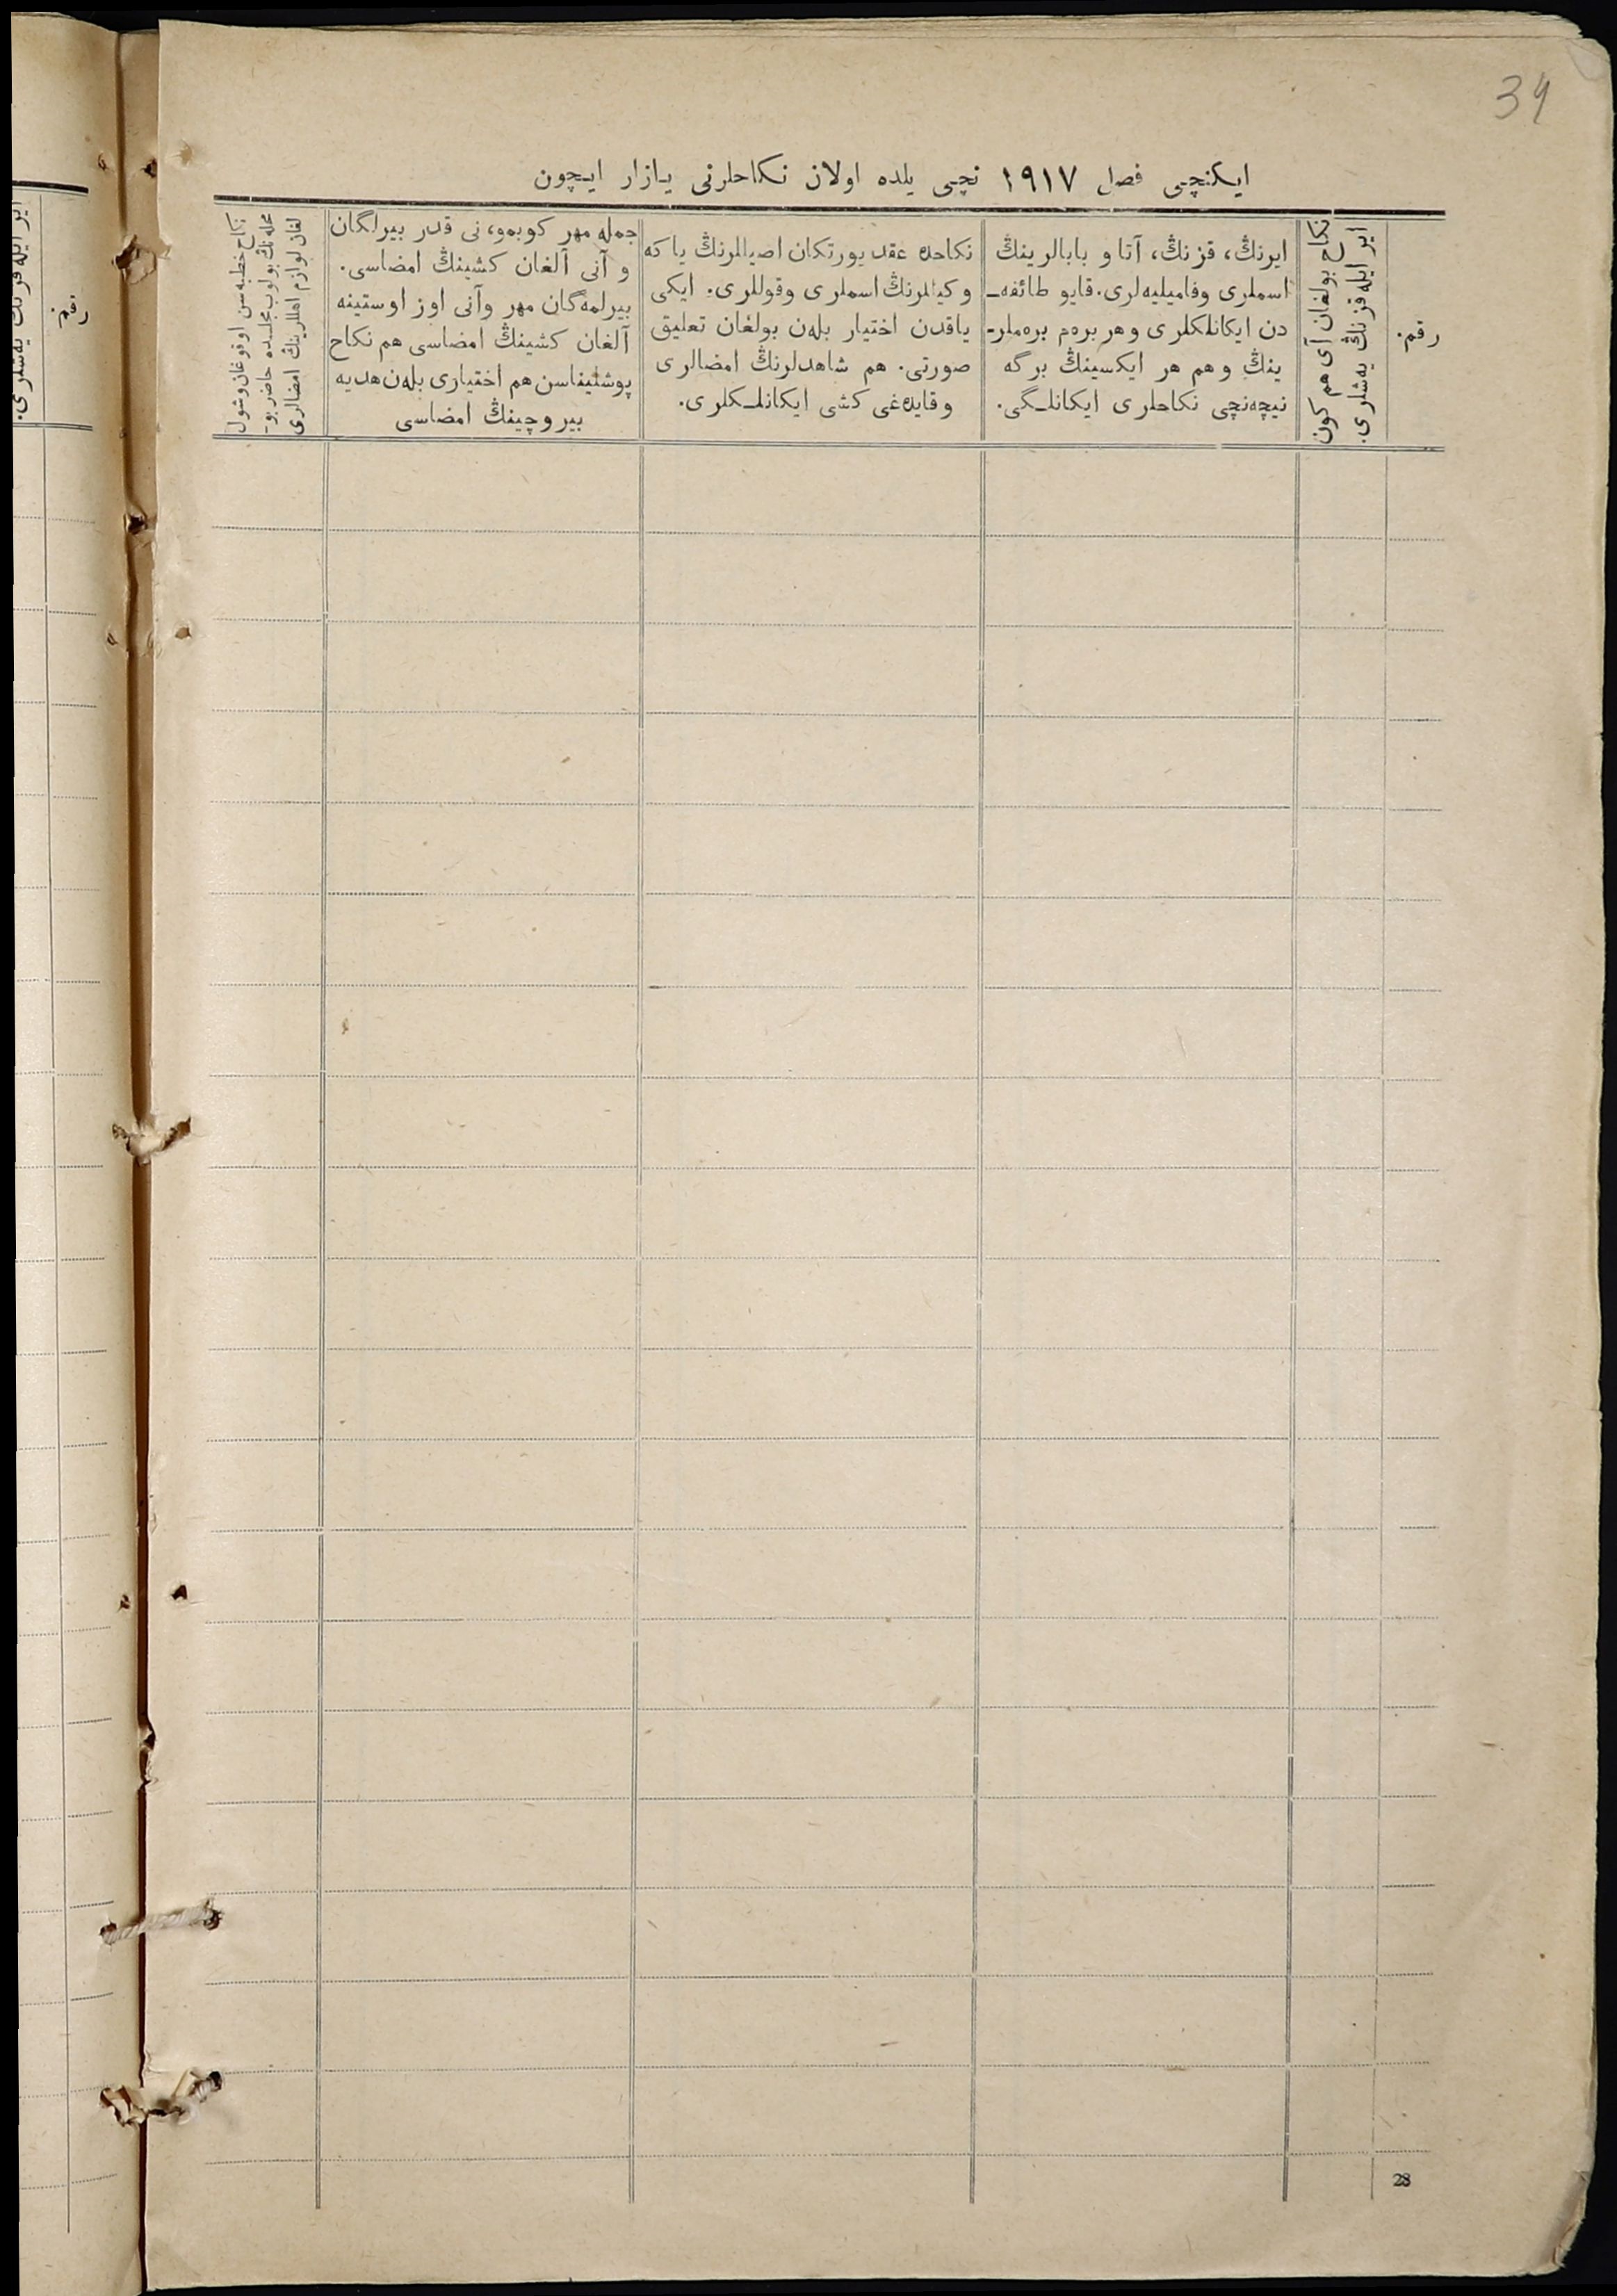 34
ایکنچی فصل ١٩١٧ نچی یلده اولان نکاحلرنی یازار ایچون
رقم.
نکاح بولغان آی هم کون
ایر ایله قزنڭ یه‌شلری.
ایرنڭ، قزنڭ، آتا و بابالرینڭ
اسملری وفامیلیه‌لری. قایو طائفه‌ـ
دن ایکانلکلری و هر بره‌م بره‌ملرـ
ینڭ و هم هر ایکسینڭ برگه
نیچه‌نچی نکاحلری ایکانلـگی.
نکاحده عقد یورتکان اصیللرنڭ یا که
وکیللرنڭ اسملری وقوللری. ایکی
یاقدن اختیار بله‌ن بولغان تعلیق
صورتی. هم شاهدلرنڭ امضالری
وقایده‌غی کشی ایکانلـکلری.
جمله مهر کوبمو، نی قدر بیرلگان
و آنی آلغان کشینڭ امضاسی.
بیرلمه‌گان مهر وآنی اوز اوستینه
آلغان کشینڭ امضاسی هم نکاح
پوشلیناسن هم اختیاری بله‌ن هدیه
بیروچینڭ امضاسی
نکاح خطبه‌سن اوقوغان وشول
محله‌نڭ بولوب مجلسده حاضر بوـ
لغان لوازم اهللرینڭ امضالری
رقم.
ایر ایله قزنڭ یه‌شلری.
28